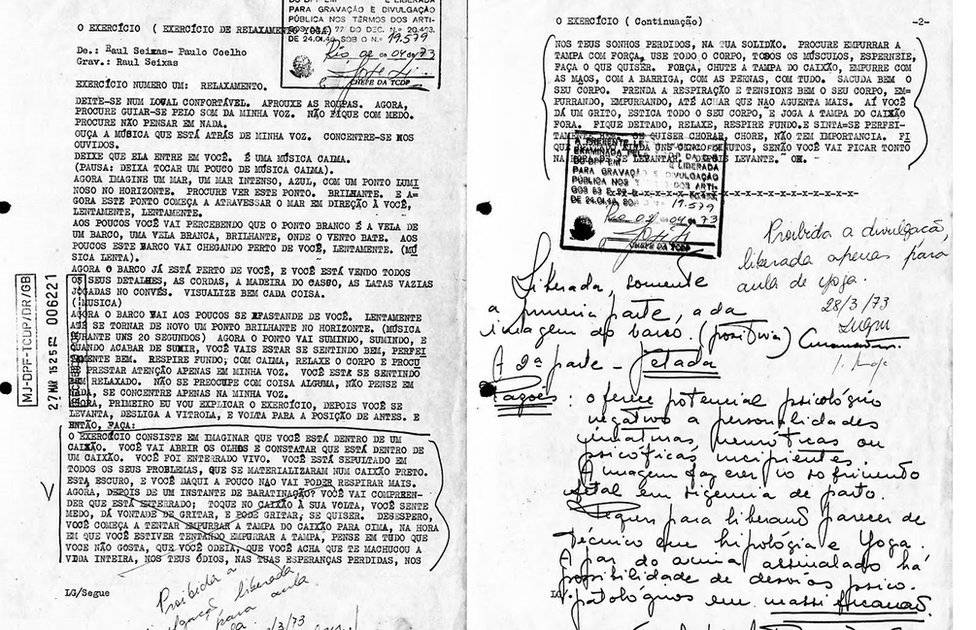 O EXERCÍCIO ( EXERCÍCIO DE RELAXAMENTO YOGA)
De.: Raul Seixas- Paulo Coelho
Grav.: Raul Seixas
E LIBERADA
PARA GRAVAÇÃO E DIVULGAÇÃO
PÚBLICA NOS TÊRMOS DOS ARTI-
77 DO DEC. N.º 20.493,
DE 24.01.46 SOB O N.º 19.579
Rio, 02/04/73
CHEFE DA TCDP
EXERCÍCIO NUMERO UM: RELAXAMENTO.
DEITE-SE NUM LOUAL CONFORTÁVEL. AFROUXE AS ROUPAS. AGORA,
PROCURE GUIAR-SE PELO SOM DA MINHA VOZ. NÃO FIQUE COM MEDO.
PROCURE NÃO PENSAR EM NADA.
OUÇA A MÚSICA QUE ESTÁ ATRÁS DE MINHA VOZ. CONCENTRE-SE NOS
OUVIDOS.
DEIXE QUE ELA ENTRE EM VOCÊ. É UMA MÚSICA CALMA.
(PAUSA: DEIXA TOCAR UM POUCO DE MÚSICA CALMA).
AGORA IMAGINE UM MAR, UM MAR INTENSO, AZUL, COM UM PONTO LUMI
NOSO NO HORIZONTE. PROCURE VER ESTE PONTO. BRILHANTE. E A-
GORA ESTE PONTO COMEÇA A ATRAVESSAR O MAR EM DIREÇÃO À VOCÊ,
LENTAMENTE, LENTAMENTE.
AOS POUCOS VOCÊ VAI PERCEBENDO QUE O PONTO BRANCO É A VELA DE
UM BARCO, UMA VELA BRANCA, BRILHANTE, ONDE O VENTO BATE. AOS
POUCOS ESTE BARCO VAI CHEGANDO PERTO DE VOCÊ, LENTAMENTE. (MÚ
SICA LENTA).
AGORA O BARCO JÁ ESTÁ PERTO DE VOCÊ, E VOCÊ ESTÁ VENDO TODOS
OS SEUS DETALHES, AS CORDAS, A MADEIRA DO CASCO, AS LATAS VAZIAS
JOGADAS NO CONVÉS. VISUALIZE BEM CADA COISA.
(MUSICA)
AGORA O BARCO VAI AOS POUCOS SE AFASTANDE DE VOCÊ. LENTAMENTE
ATÉ SE TORNAR DE NOVO UM PONTO BRILHANTE NO HORIZONTE. (MÚSICA
DURANTE UNS 20 SEGUNDOS) AGORA O PONTO VAI SUMINDO, SUMINDO, E
QUANDO ACABAR DE SUMIR, VOCÊ VAIS ESTAR SE SENTINDO BEM, PERFEI
TAMENTE BEM. RESPIRE FUNDO; COM CALMA, RELAXE O CORPO E PROCU
PRESTAR ATENÇÃO APENAS EM MINHA VOZ. VOCÊ ESTÁ SE SENTINDO
BEM RELAXADO. NÃO SE PREOCUPE COM COISA ALGUMA, NÃO PENSE EM
NADA, SE CONCENTRE APENAS NA MINHA VOZ.
AGORA, PRIMEIRO EU VOU EXPLICAR O EXERCÍCIO, DEPOIS VOCÊ SE
LEVANTA, DESLIGA A VITROLA, E VOLTA PARA A POSIÇÃO DE ANTES. E
ENTÃO, FAÇA:
O EXERCÍCIO CONSISTE EM IMAGINAR QUE VOCÊ ESTÁ DENTRO DE UM
CAIXÃO. VOCÊ VAI ABRIR OS OLHOS E CONSTATAR QUE ESTÁ DENTRO DE
UM CAIXÃO. VOCÊ FOI ENTERRADO VIVO. VOCÊ ESTÁ SEPULTADO EM
TODOS OS SEUS PROBLEMAS, QUE SE MATERIALIZARAM NUM CAIXÃO PRETO.
ESTÁ ESCURO, E VOCÊ DAQUI A POUCO NÃO VAI PODER RESPIRAR MAIS.
AGORA, DEPOIS DE UM INSTANTE DE BARATINAÇÃO? VOCÊ VAI COMPREEN-
DER QUE ESTÁ ENTERRADO; TOQUE NO CAIXÃO À SUA VOLTA, VOCÊ SENTE
MEDO, DÁ VONTADE DE GRITAR, E PODE GRITAR, SE QUISER. DESESPERO,
VOCÊ COMEÇA A TENTAR EMPURRAR A TAMPA DO CAIXÃO PARA CIMA, NA HORA
EM QUE VOCÊ ESTIVER TENTANDO EMPURRAR A TAMPA, PENSE EM TUDO QUE
VOCE NÃO GOSTA, QUE VOCÊ ODEIA, QUE VOCÊ ACHA QUE TE MACHUCOU A
VIDA INTEIRA, NOS TEUS ÓDIOS, NAS TUAS ESPERANÇAS PERDIDAS, NOS
LG/Segue
MJ-DPF-TCDP/DR/GB
27 MAR 1555 006221
Proibida a
liberada
para aula
3/73
O EXERCÍCIO ( Continuação)
-2-
NOS TEUS SONHOS PERDIDOS, NA TUA SOLIDXO. PROCURE EMPURRAR A
TAMPA COM FORÇA, USE TODO O CORPO, TODOS OS MÚSCULOS, ESPERNEIE,
FAÇA O QUE QUISER. FORÇA, CHUTE A TAMPA DO CAIXÃO, EMPURRE COM
AS MAOS, COM A BARRIGA, COM AS PERNAS, COM TUDO. SACUDA BEM O
SEU CORPO. PRENDA A RESPIRAÇÃO E TENSIONE BEM O SEU CORPO, EM-
PURRANDO, EMPURRANDO, ATÉ ACHAR QUE NAO AGUENTA MAIS. AÍ VOCÊ
DÁ UM GRITO, ESTICA TODO O SEU CORPO, E JOGA A TAMPA DO CAIXÃO
FORA. FIQUE DEITADO, RELAXE, RESPIRE FUNDO.E SINTA=SE PERFEI-
QUISER CHORAR, CHORE, NÃO TEM IMPORTANCIA. FI
AINDA UNS CINCO MINUTOS, SENÃO VOCÊ VAI FICAR TONTO
LEVANTAR. LEVANTE. OK. -
A PRESENTE
EXAMINADA PEL
E LIBERADA
PARA GRAVAÇÃO DIVULGAÇÃO
PÚBLICA NOS T DOS ARTI-
DE 24.01.46, 19.579
Rio 02/04/73
CHEFE DA TCDP
Proibida a divulgação,
liberada apenas para
aula de yoga.
28/3/73
Liberada, somente
a primeira parte, a da
imagem do barco. (positiva)
A 2ª parte - Vetada
Razões: oferece potencial psicológico
negativo a personalidades
imaturas, neuróticas ou
psicóticas incipientes.
A imagem faz exercício sofrimento
fetal em sugemia de parto.
Sugiro para liberação parecer de
técnico em hipologia e Yoga.
A par do acima assinalado há
possibilidade de desvios psico
patológicos em massificação.
LG